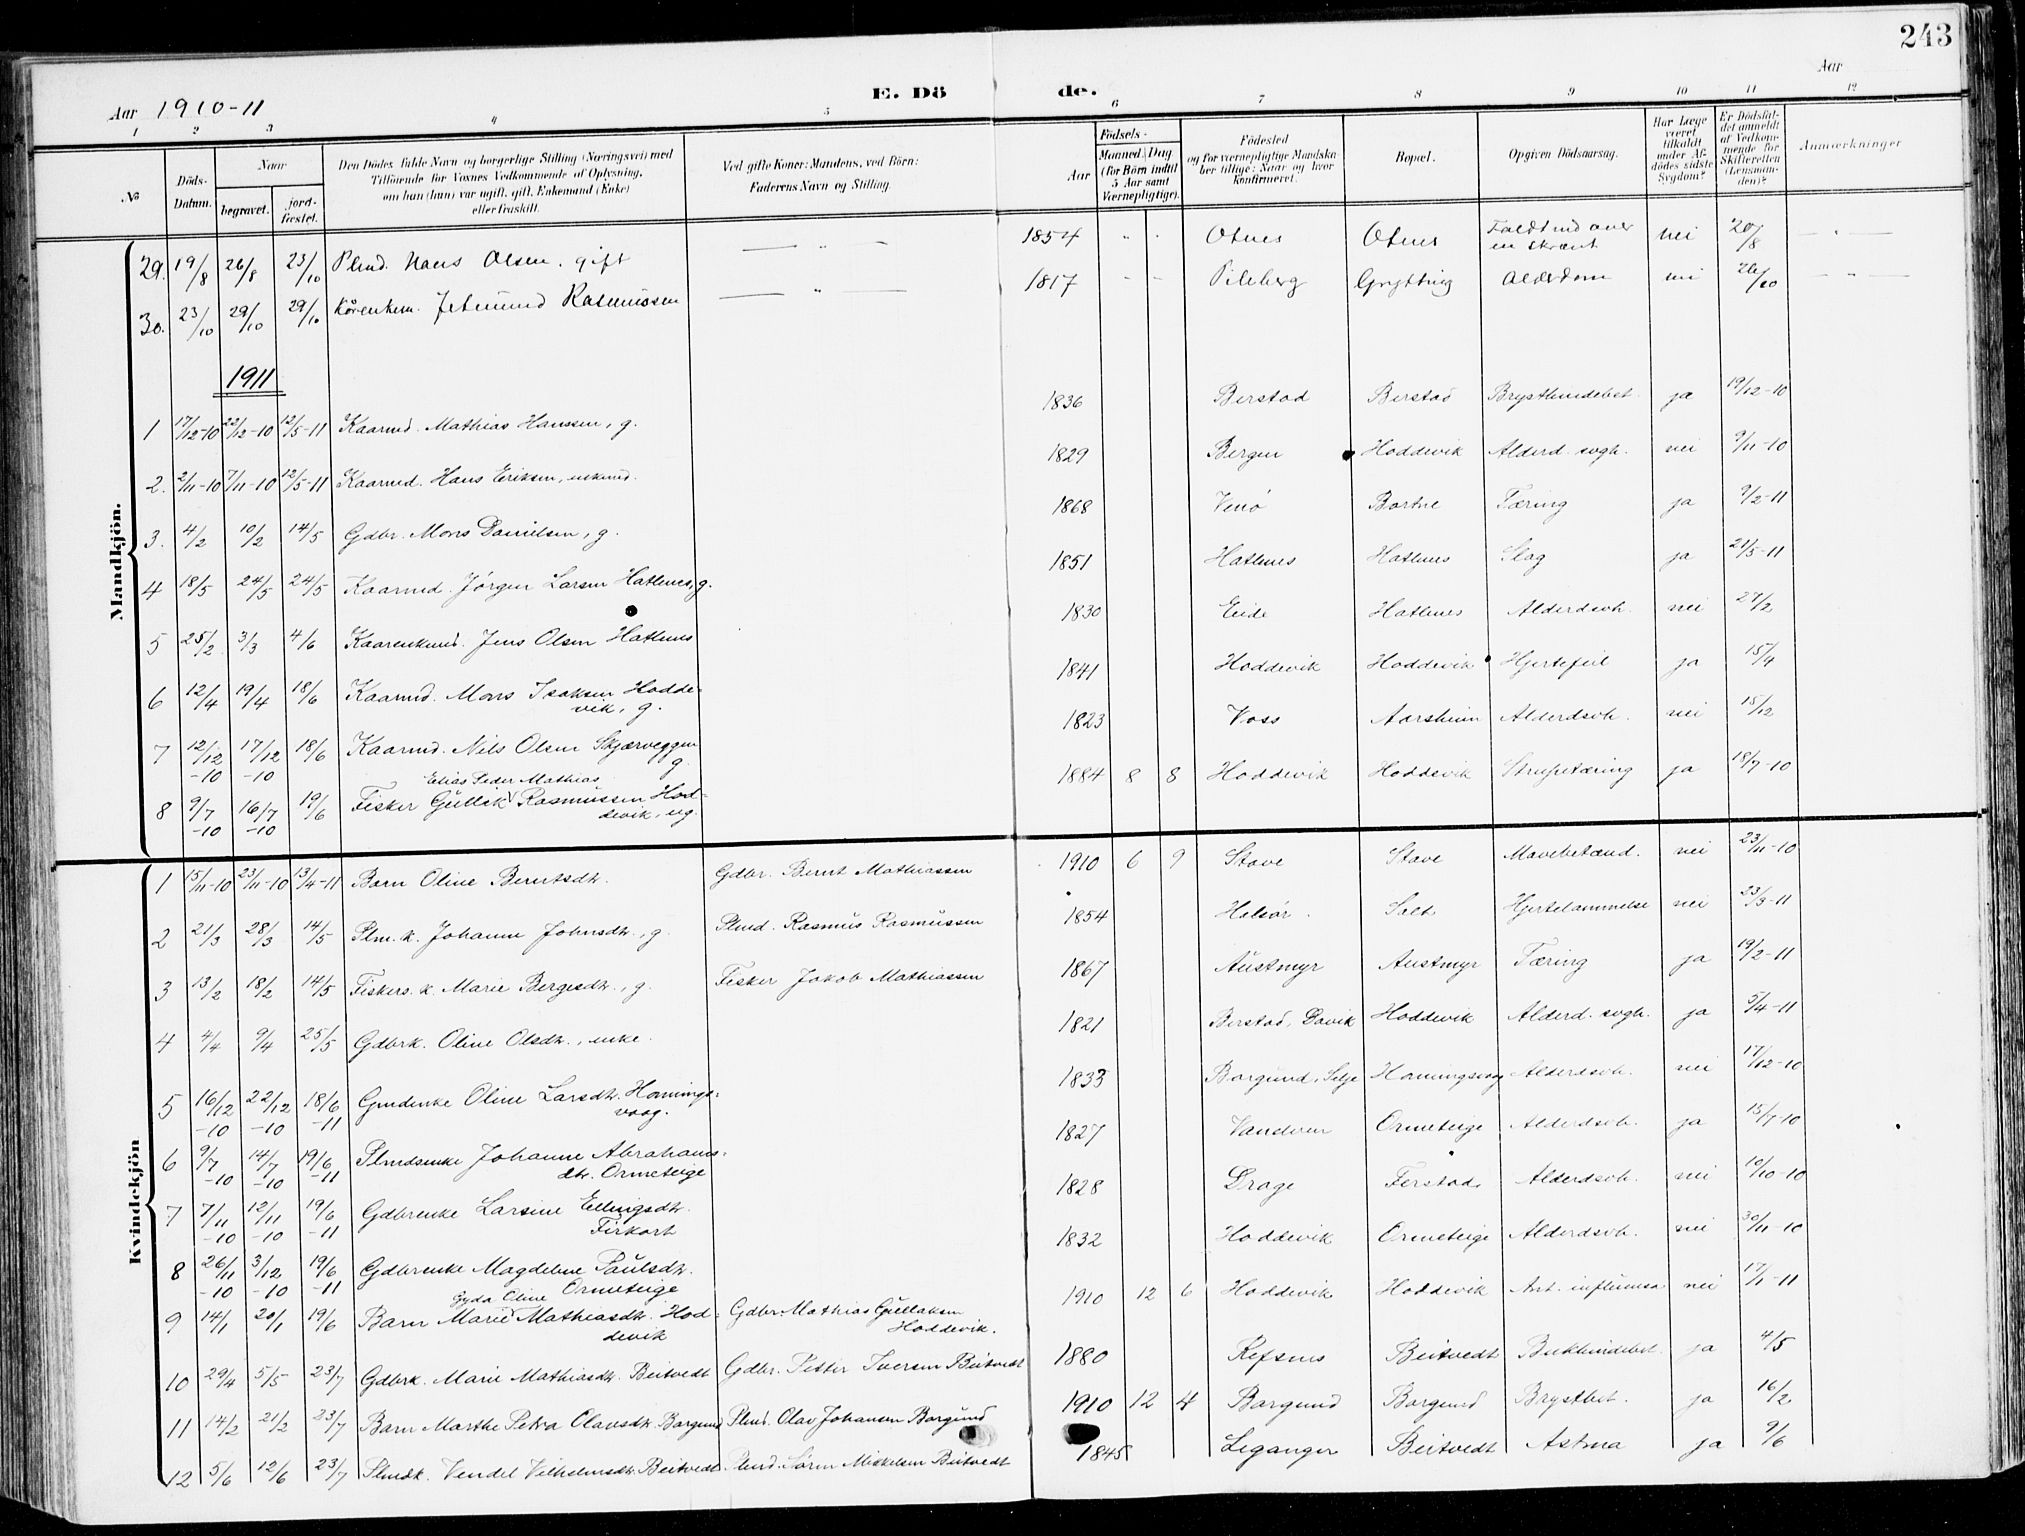 243
Aar 1910-11
E. Dö de.
Aar
1 2 3 4 5 6 7 8 9 10 11 12
№
Döds-Datum.
Naar
begravet.
jord-fæstet.
Den Dödes fulde Navn og borgerlige Stilling (Næringsvei) med
Tilföiende for Voxnes Vedkommende af Oplysning,
om han (hun) var ugift, gift, Enkemand (Enke)
eller fraskilt.
Ved gifte Koner: Mandens, ved Börn:
Faderens Navn og Stilling.
Födsels-
Aar
Maaned. Dag
(for Börn indtil
5 Aar samt
Værnepligtige).
Födested
og for værnepligtige Mandska-
ber tillige: Naar og hvor
konfirmeret.
Bopæl.
Opgiven Dödsaarsag.
Har Læge
været
tilkaldt
under Af-
dödes sidste
Sygdom?
Er Dödsfal-
det anmeldt
af Vedkom-
mende for
Skifteretten
(Lensman-
den)?
Anmærkninger
Mandkjön.
29. 19/8 26/8 23/10 Plmd. Hans Olsen. gift — " — 1854 " " Otnes Otnes Faldt ind over en skrænt nei 20/8 — " —
30. 23/10 29/10 29/10 Kårenkem. Jetmund Rasmussen — " — 1817 – – Pileberg Gryttring Alderdom nei 26/10 — " —
1911
1 17/12-10 22/12-10 12/5-11 Kaarmd. Mathias Hanssen, g. 1836 Berstad Berstad Brysthindebet. ja 19/12-10
2. 2/11-10 7/11-10 12/5-11 Kaarmd. Hans Eriksen, enkemd. 1829 Bergen Hoddevik Alderd. svgh. nei 9/11-10
3. 4/2 10/2 14/5 Gdbr. Mons Danielsen, g. 1868 Venö Bortne Tæring ja 9/2-11
4 18/5 24/5 24/5 Kaarmd. Jørgen Larsen Hatlenes, g. 1851 Hatlenes Hatlenes Slag ja 21/5-11
5 25/2 3/3 4/6 Kaarenkmd. Jens Olsen Hatlenes 1830 Eide Hatlenes Alderdsvh. nei 27/2
6 12/4 19/4 18/6 Kaarmd. Mons Isaksen Hodde-
vik, g. 1841 Hoddevik Hoddevik Hjertefeil ja 15/4
7 12/12-10 17/12-10 18/6 Kaarmd. Nils Olsen Skjærveggen
g. 1823 Voss Aarsheim Alderdsvh. nei 15/12
Elias Peder Mathias
8 9/7-10 16/7-10 19/6 Fisker Gullik Rasmussen Hod-
devik, ug. 1884 8 8 Hoddevik Hoddevik Strupetæring ja 18/7-10
Kvindekjön
1 15/11-10 23/11-10 13/4-11 Barn Oline Berntsdtr. Gdbr. Bernt Mathiassen 1910 6 9 Stave Stave Mavebetænd. nei 23/11-10
2 21/3 28/3 14/5 Plm. k. Johanne Johnsdtr., g. Plmd. Rasmus Rasmussen 1854 Halsør. Salt Hjertelammelse nei 23/3-11
3 13/2 18/2 14/5 Fiskers. k. Marie Bergesdtr., g. Fisker Jakob Mathiassen 1867 Austmyr Austmyr Tæring ja 19/2-11
4 4/4 9/4 25/5 Gdbrk. Oline Olsdtr., enke. 1821 Berstad, Davik Hoddevik Alderd. svgh. ja 5/4-11
5 16/12-10 22/12-10 18/6-11 Gmdenke Oline Larsdtr. Honnings-
vaag. 1833 Borgund, Selje Honningsvaag Alderdsvh. nei 17/12-10
6 9/7-10 14/7-10 19/6-11 Plmdsenke Johanne Abrahams-
dtr. Ormeteige 1827 Vandven Ormeteige Alderdsvh. ja 15/7-10
7 7/11-10 12/11-10 19/6-11 Gdbrenke Larsine Ellingsdtr.
1828 Drage Ferstad Alderdsvh. nei 10/10-10
8 26/11-10 3/12-10 19/6-11 Gdbrenke Magdelene Paulsdtr.
Ormeteige 1832 Hoddevik Ormeteige Alderdsvh. nei 30/11-10
Gyda Oline
9 14/1 20/1 19/6 Barn Marie Mathiasdtr. Hod-
devik Gdbr. Mathias Gullaksen
Hoddevik. 1910 12 6 Hoddevik Hoddevik Ant. influensa nei 17/1-11
10 29/4 5/5 23/7 Gdbrk. Marie Mathiasdtr. Beitvedt Gdbr. Petter Iversen Beitvedt 1880 Refsnes Beitvedt Bukhindebet. ja 4/5
11 14/2 21/2 23/7 Barn Marthe Petra Olavsdtr. Borgund Plmd. Olav Johansen Borgund 1910 12 4 Borgund Borgund Brystbet. ja 16/2
12 5/6 12/6 23/7 Plmdk. Vendel Vilhelmsdtr. Beitvedt Plmd. Sørен Mikkelsen Beitvedt 1845 Leganger Beitvedt Astma ja 9/6